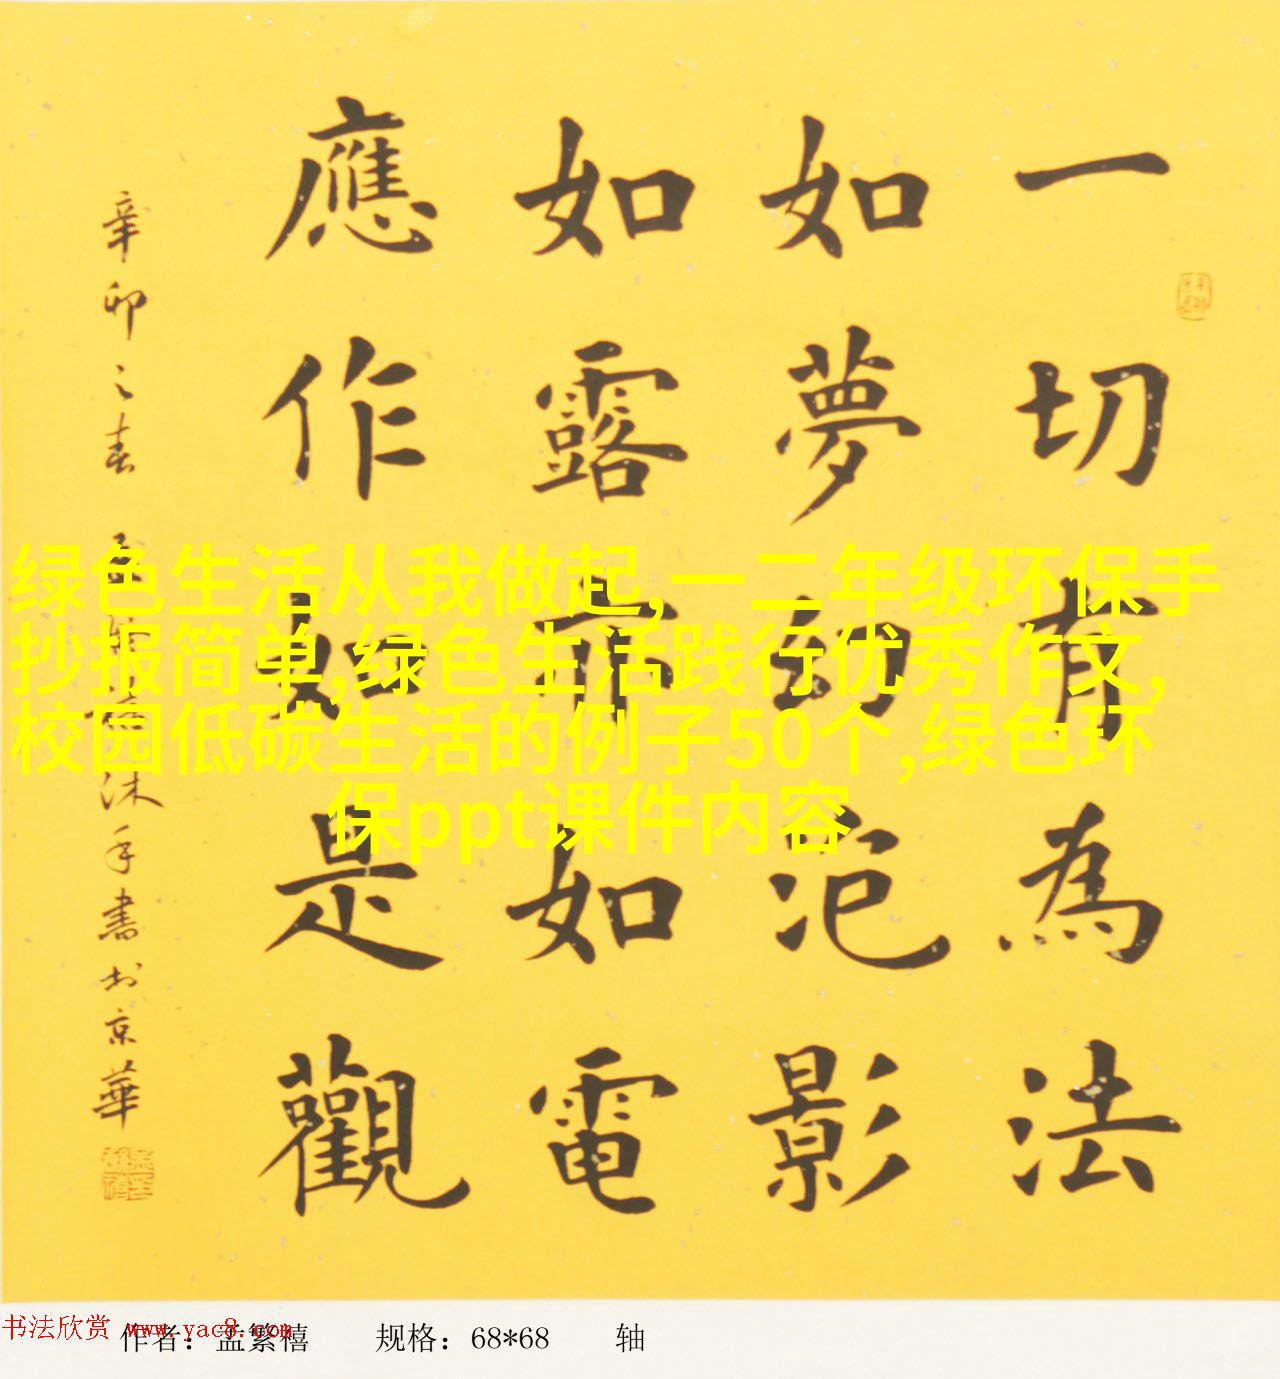 一切有為法
如夢幻泡影
如露亦如電
應作如是觀
辛卯之春 孟繁禧沐手書於京華
绿色生活从我做起,一二年级环保手
抄报简单,绿色生活践行优秀作文,
校园低碳生活的例子50个,绿色环
保ppt课件内容
书法欣赏 www.yac8.com
作者：孟繁禧 规格：68*68 轴